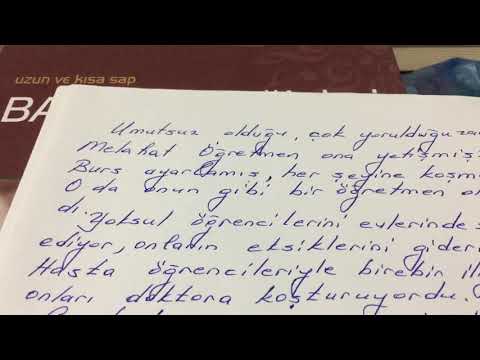 uzun ve kısa sap
BA
Umutsuz olduğu, çok yorulduğu za
Melahat Öğretmen ona yetişmiş
Burs ayarlamış, her şeyine koşm
O da onun gibi bir öğretmen ol
di. Yoksul öğrencilerini evlerinde
ediyor, onların eksiklerini gideri
Hasta öğrencileriyle birebir il
onları doktora koşturuyordu.